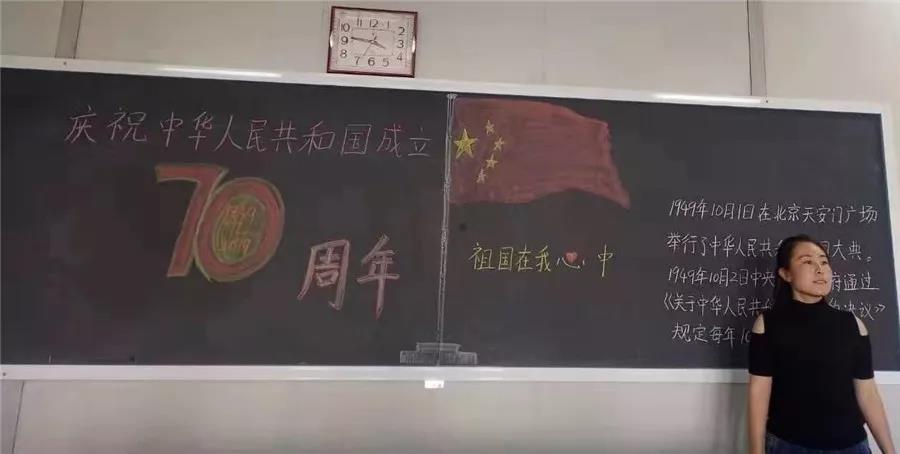 庆祝中华人民共和国成立
70
1949
2019
周年
祖国在我心中
1949年10月1日在北京天安门广场
举行了中华人民共 国大典。
1949年10月2日中央 府通过
《关于中华人民共 的决议》
规定每年10
12
11
1
10
2
9
3
8
4
7
5
6